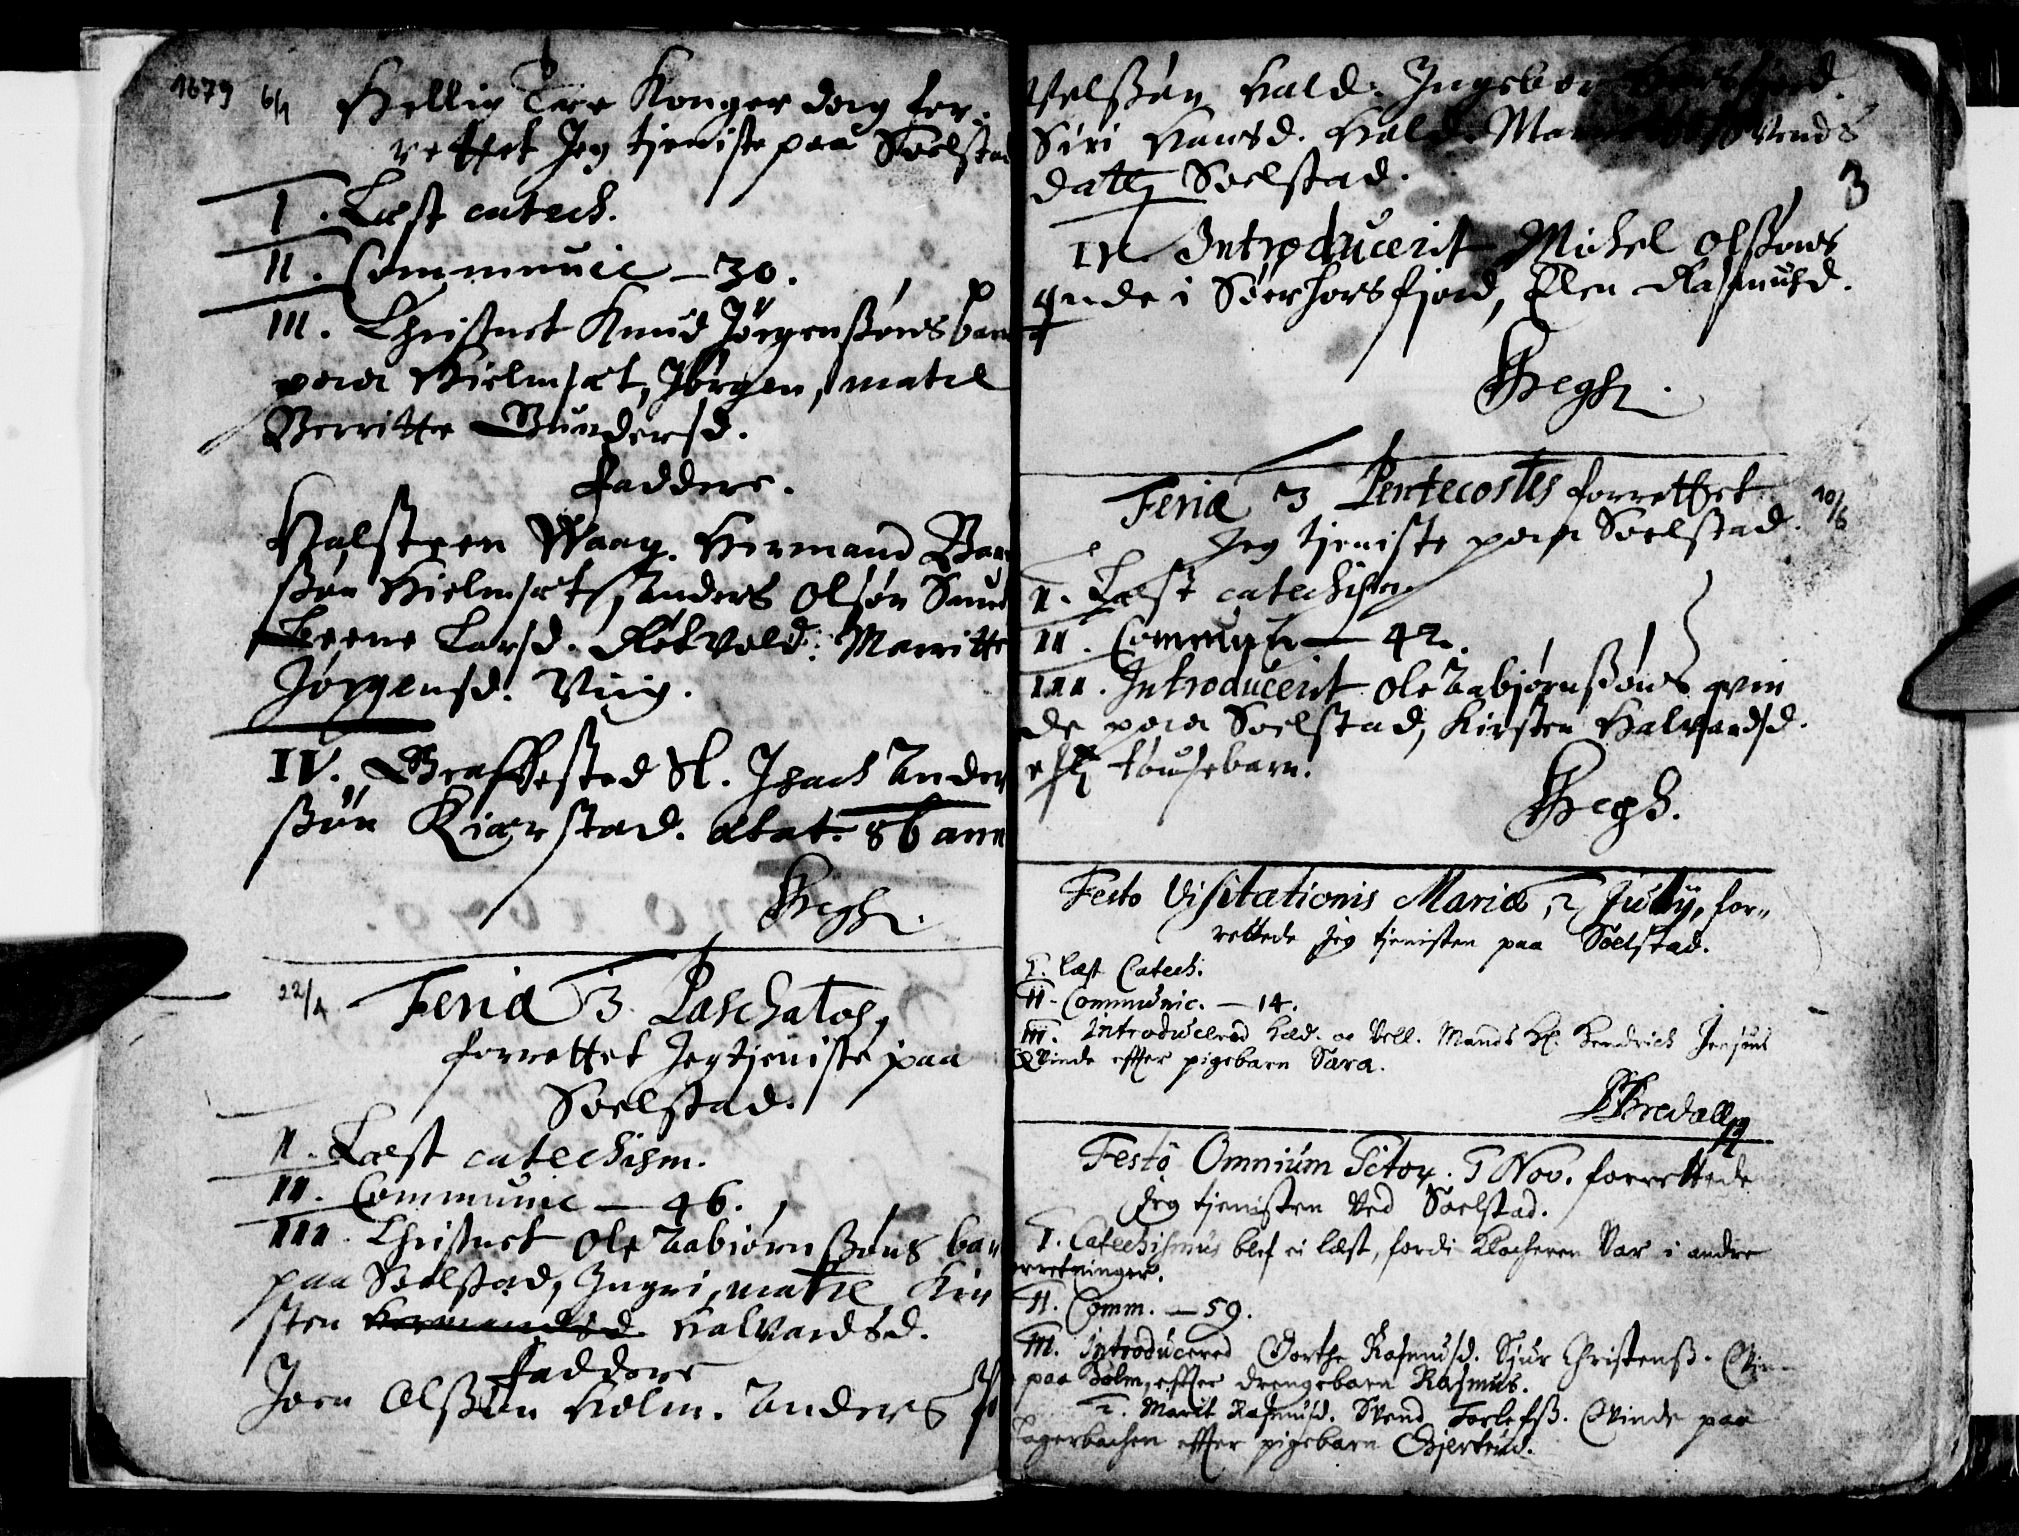 1679 6/1 Hellig Tre Konger dag for-
rettet Jeg tieniste paa Soelstad
I. Læst catech.
II. Communic — 30.
III. Christnet Knud Jørgensøns barn
paa Hielmsæt, Jørgen, mater
Berritte Gundersd.
Faddere.
Halsteen Waag. Hermand
ßøn Hielmsæt, Anders Olsøn
Leene Larsd. Marritte
Jørgensd. Viig.
IV. Graffested Sl. Isach Ander
ßøn Kierstad. ætat. 86 ann
Hegh.
22/4 Feria 3 Paschatos,
forrettet Jeg tieniste paa
Soelstad.
I. Læst catechism.
II. Communic — 46.
III. Christnet Ole Aabiørnßøns ba
paa Soelstad, Ingri, mater Kir
sten Hermandsd Halvardsd.
Faddere
Joen Olßøn Holm. Anders
Nelßøn Hald: Ingebor
Siri Hansd. Hald. Svends
datt Soelstad.
3
IV Introducerit Michel Olßøns
qvinde i Sørhorsfjord, Elen Rasmusd.
Hegh.
Feria 3 Pentecostes forrettet 10/6
Jeg tjeniste paa Soelstad.
I. Læst catechism
II. Communic — 42.
III. Introducerit Ole Aabjørnßøns qvin
de paa Soelstad, Kirsten Halvardsd.
efft tousebarn.
Hegh.
Festo Visitationis Mariæ, 2 July, for-
rettede Jeg tjenisten paa Soelstad.
I. læst Catech.
II. Communic. — 14.
III. Introducered Hæd. oc Vell. Mands Hr. Hendrich Jensøns
Qvinde effter pigebarn Sara.
Bredall
Festo Omnium Sctor. 1 Nov. forrettede
Jeg tjenisten Ved Soelstad.
I. Catechismus blef ei læst, fordi Klocheren Var i andre
forretninger.
II. Comm. — 59.
III. Introducered Dorthe Rasmusd. Sjur Christenß. Qvin
paa Holm, effter drengebarn Rasmus.
2. Marit Rasmusd. Svend Torlefß. Qvinde paa
Hagerbachen effter pigebarn Gjertrud.